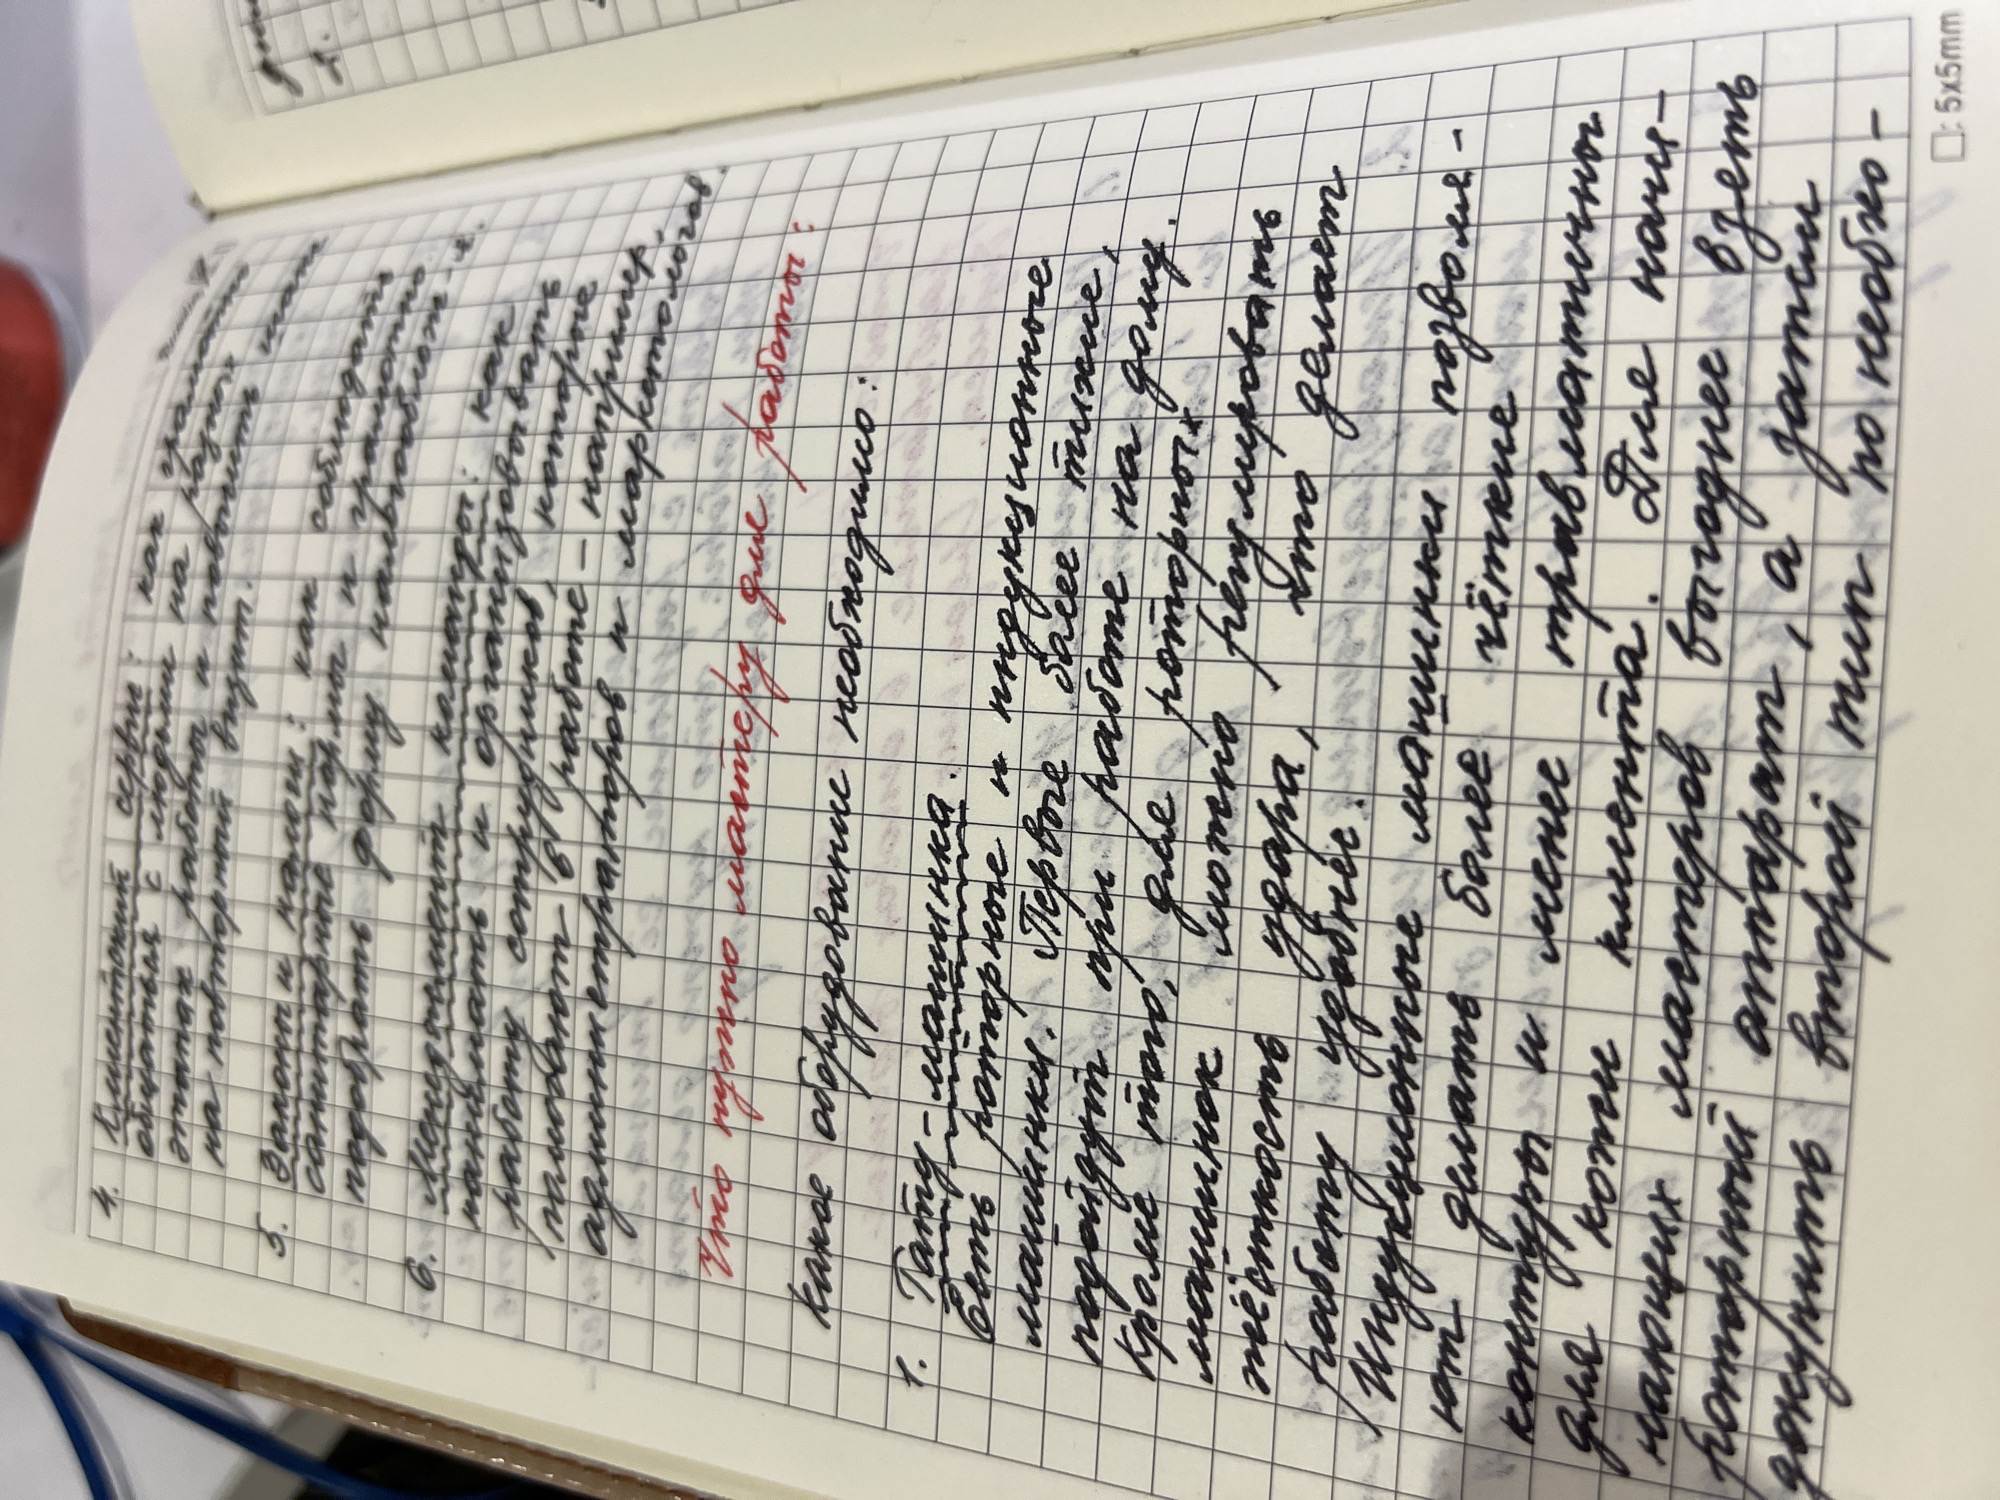 4. Клиентский сервис: как грамотно
общаться с людьми на разных
этапах работы и повысить шанс
на повторный визит.
5. Законы и налоги: как соблюдать
санитарные нормы и грамотно
подобрать форму налогообложе-я.
6. Менеджмент команды: как
нанимать и организовывать
работу сотрудников, которые
помогают в работе – например,
администраторов и маркетологов.
Что нужно мастеру для работы:
Какое оборудование необходимо:
1. Тату-машинка.
Есть роторные и индукционные
машинки. Первые более тихие,
подойдут при работе на дому.
Кроме того, для роторных
машинок можно регулировать
жёсткость удара, что делает
работу удобнее.
Индукционные машинки позволя-
ют делать более чёткие
контуры и менее травматичны
для кожи клиента. Для начи-
нающих мастеров выгоднее взять
роторный аппарат, а затем
докупить второй тип по необхо-
□: 5x5mm